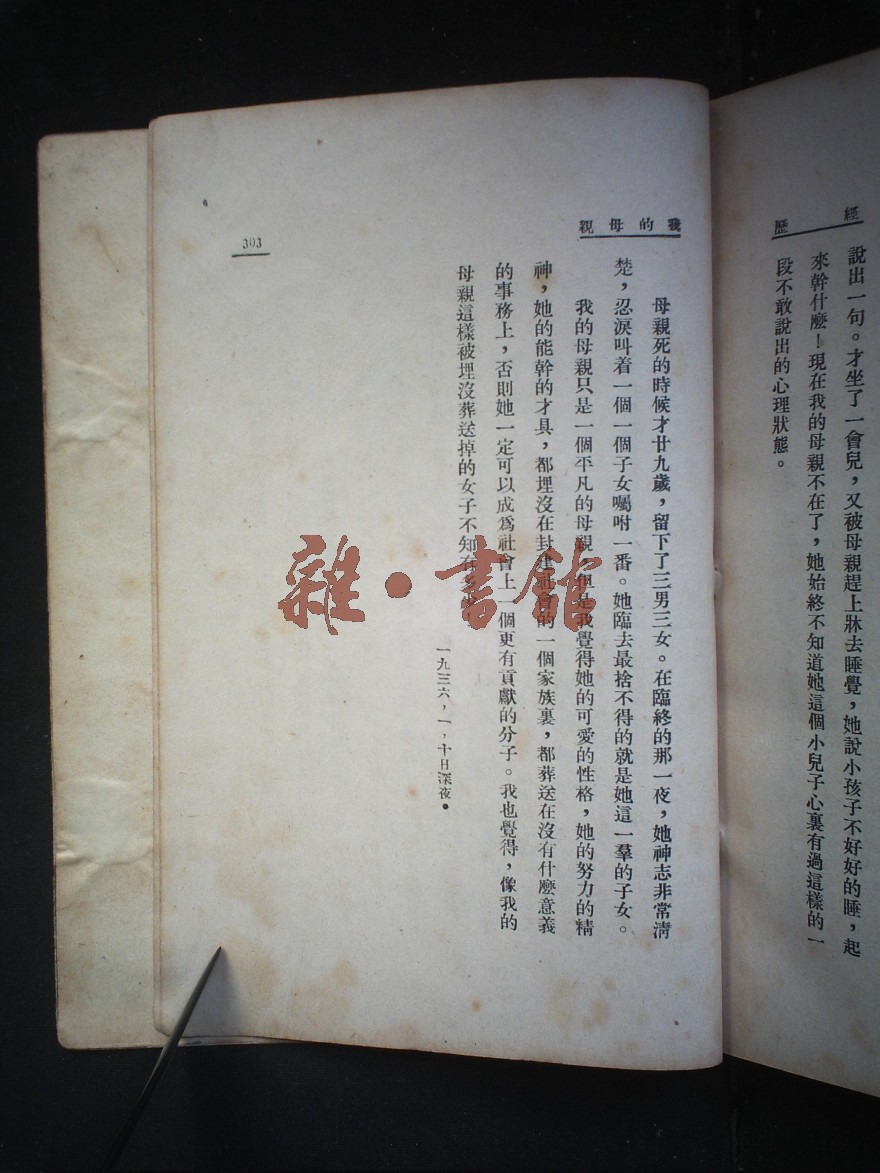 經歷
說出一句。才坐了一會兒，又被母親趕上牀去睡覺，她說小孩子不好好的睡，起
來幹什麼！現在我的母親不在了，她始終不知道她這個小兒子心裏有過這樣的一
段不敢說出的心理狀態。
我的母親
母親死的時候才廿九歲，留下了三男三女。在臨終的那一夜，她神志非常清
楚，忍淚叫着一個一個子女囑咐一番。她臨去最捨不得的就是她這一羣的子女。
我的母親只是一個平凡的母親，但是我覺得她的可愛的性格，她的努力的精
神，她的能幹的才具，都埋沒在封建社會的一個家族裏，都葬送在沒有什麼意義
的事務上，否則她一定可以成爲社會上一個更有貢獻的分子。我也覺得，像我的
母親這樣被埋沒葬送掉的女子不知有
一九三六，一，十日深夜。
303
雜·書館